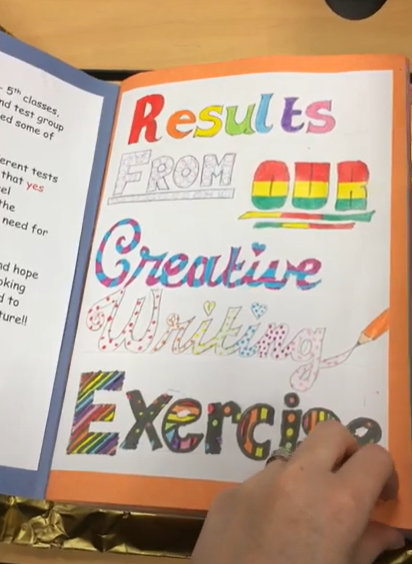 5th classes,
nd test group
ed some of
erent tests
that yes
el
the
need for
nd hope
oking
d to
ture!!
Results
FROM OUR
Creative
Writing
Exercise